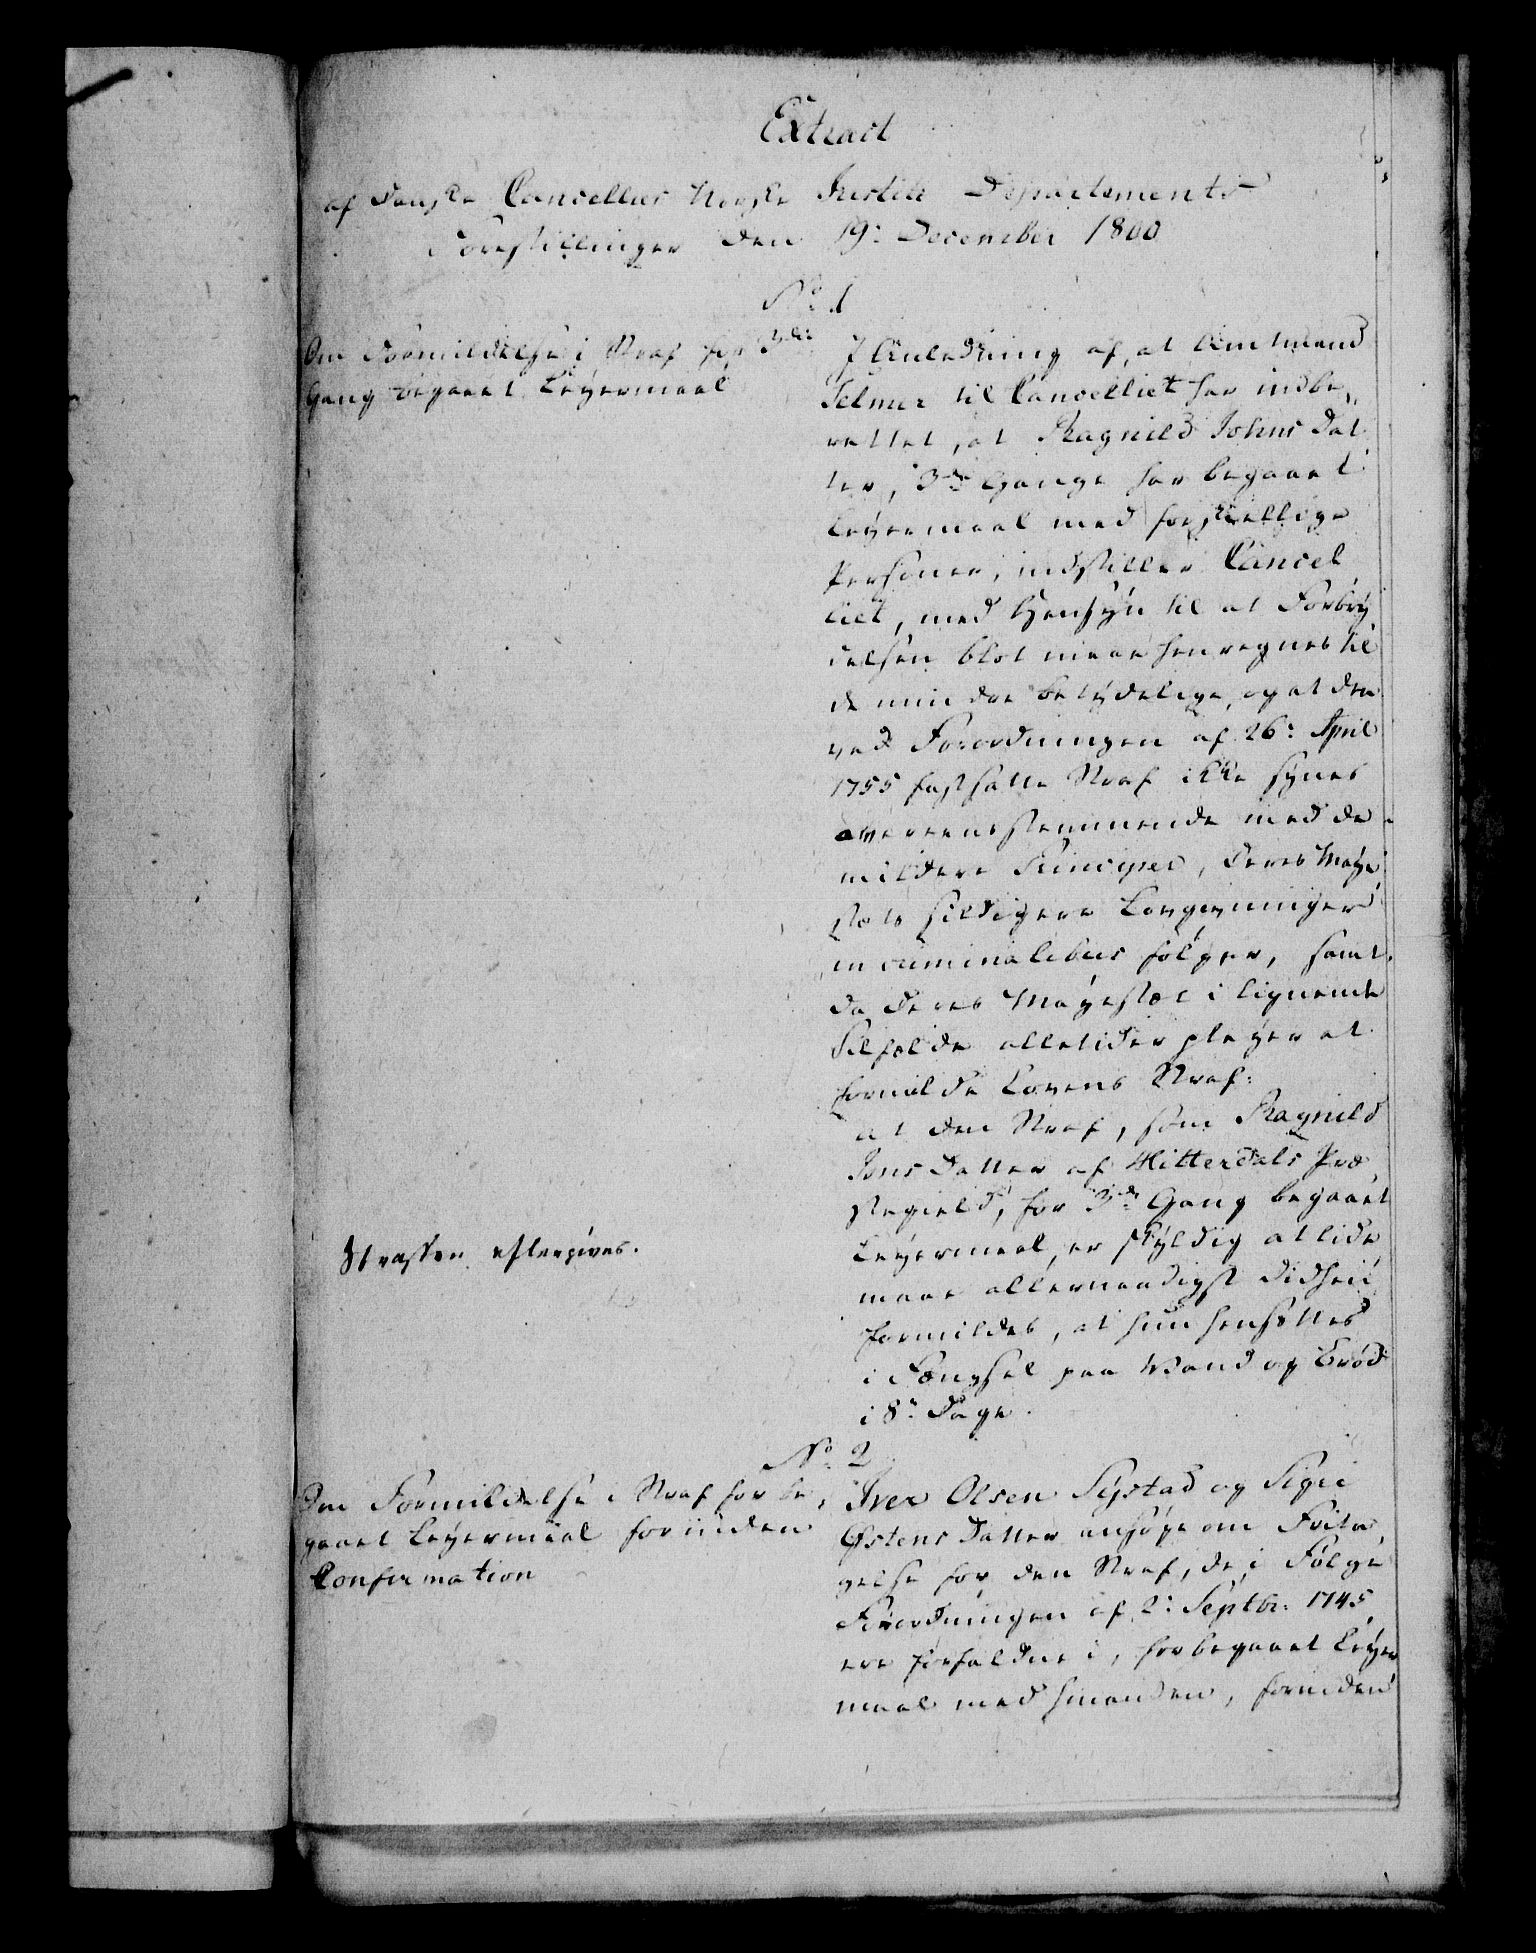 Extract
af Danske Cancellies Norske Justits Departements
Forestillinger den 19: December 1800
No. 1
Om Formildelse i Straf for 3die
Gang begaaet Leyermaal
I Anledning af, at Amtmand
Selmer til Cancelliet har indbe„
rettet, at Ragnild Johns Dat
ter, 3de Gange har begaaet
Leyermaal med forskiellige
Personer, indstiller Cancel
liet, med Hensyn til at Forbry
delsen blot maae henregnes til
de mindre betydelige, og at den
ved Forordningen af 26: April
1755 fastsatte Straf ikke synes
overeensstemmende med de
mildere Principer, Deres Maje
stæts sildigere Lovgivninger
in criminalibus følger, samt
da Deres Majestæt i lignende
Tilfælde alletider pleyer at
formilde Lovens Straf:
at den Straf, som Ragnild
Jons Datter af Hitterdals Præ
stegield, for 3de Gang begaaet
Leyermaal, er skyldig at lide
maae allernaadigst didhen
formildes, at hun hensættes
i Fængsel paa Vand og Brød
i 8te Dage.
Straffen eftergives.
No. 2
Om Formildelse i Straf for be„
gaaet Leyermaal forinden
Confirmation
Iver Olsen Systad og Sigri
Østens Datter ansøge om Frita
gelse for den Straf, de i Følge
Forordningen af 2: Septbr: 1745
ere forfaldne i, for begaaet Leyer
maal med hinanden, forinden